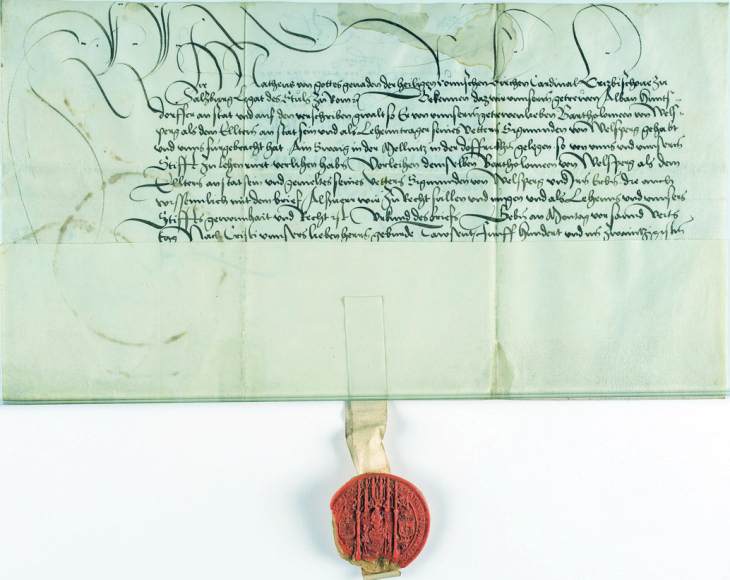 Wir Matheus von gottes genaden der heiligen Römischen kirchen Cardinal Ertzbischove zu
Saltzburg Legat des Stuls zu Rom Bekennen daz wir unserm getrewen Alban
an stat und auf den verschriben so Er von unserm getrewen lieben Bartholomeen von Wels-
perg als dem Elltern an stat sein und als Lehentrager seines Vettern Sigmunden von Welsperg gehabt
und unns furgebracht hat Ain Swaig in der Mellnitz in der gelegen so von unns und unserm
Stifft zu lehen rurt verlihen haben Verleihen dem selben Bartholomeen von Welsperg als dem
Elltern an stat sein und gemeltes seines Vettern Sigmunden von Welsperg und Irer Erben die auch
wissenntlich mit dem brief Als wir zu Recht sullen und mugen und als Lehenns und unsers
Stiffts gewonhait und Recht ist Urkund des briefs Geben an Montag vor sannd Veits
tag Nach Cristi unnsers lieben herrn geburde Tawsent funff Hundert und im zwaintzigisten